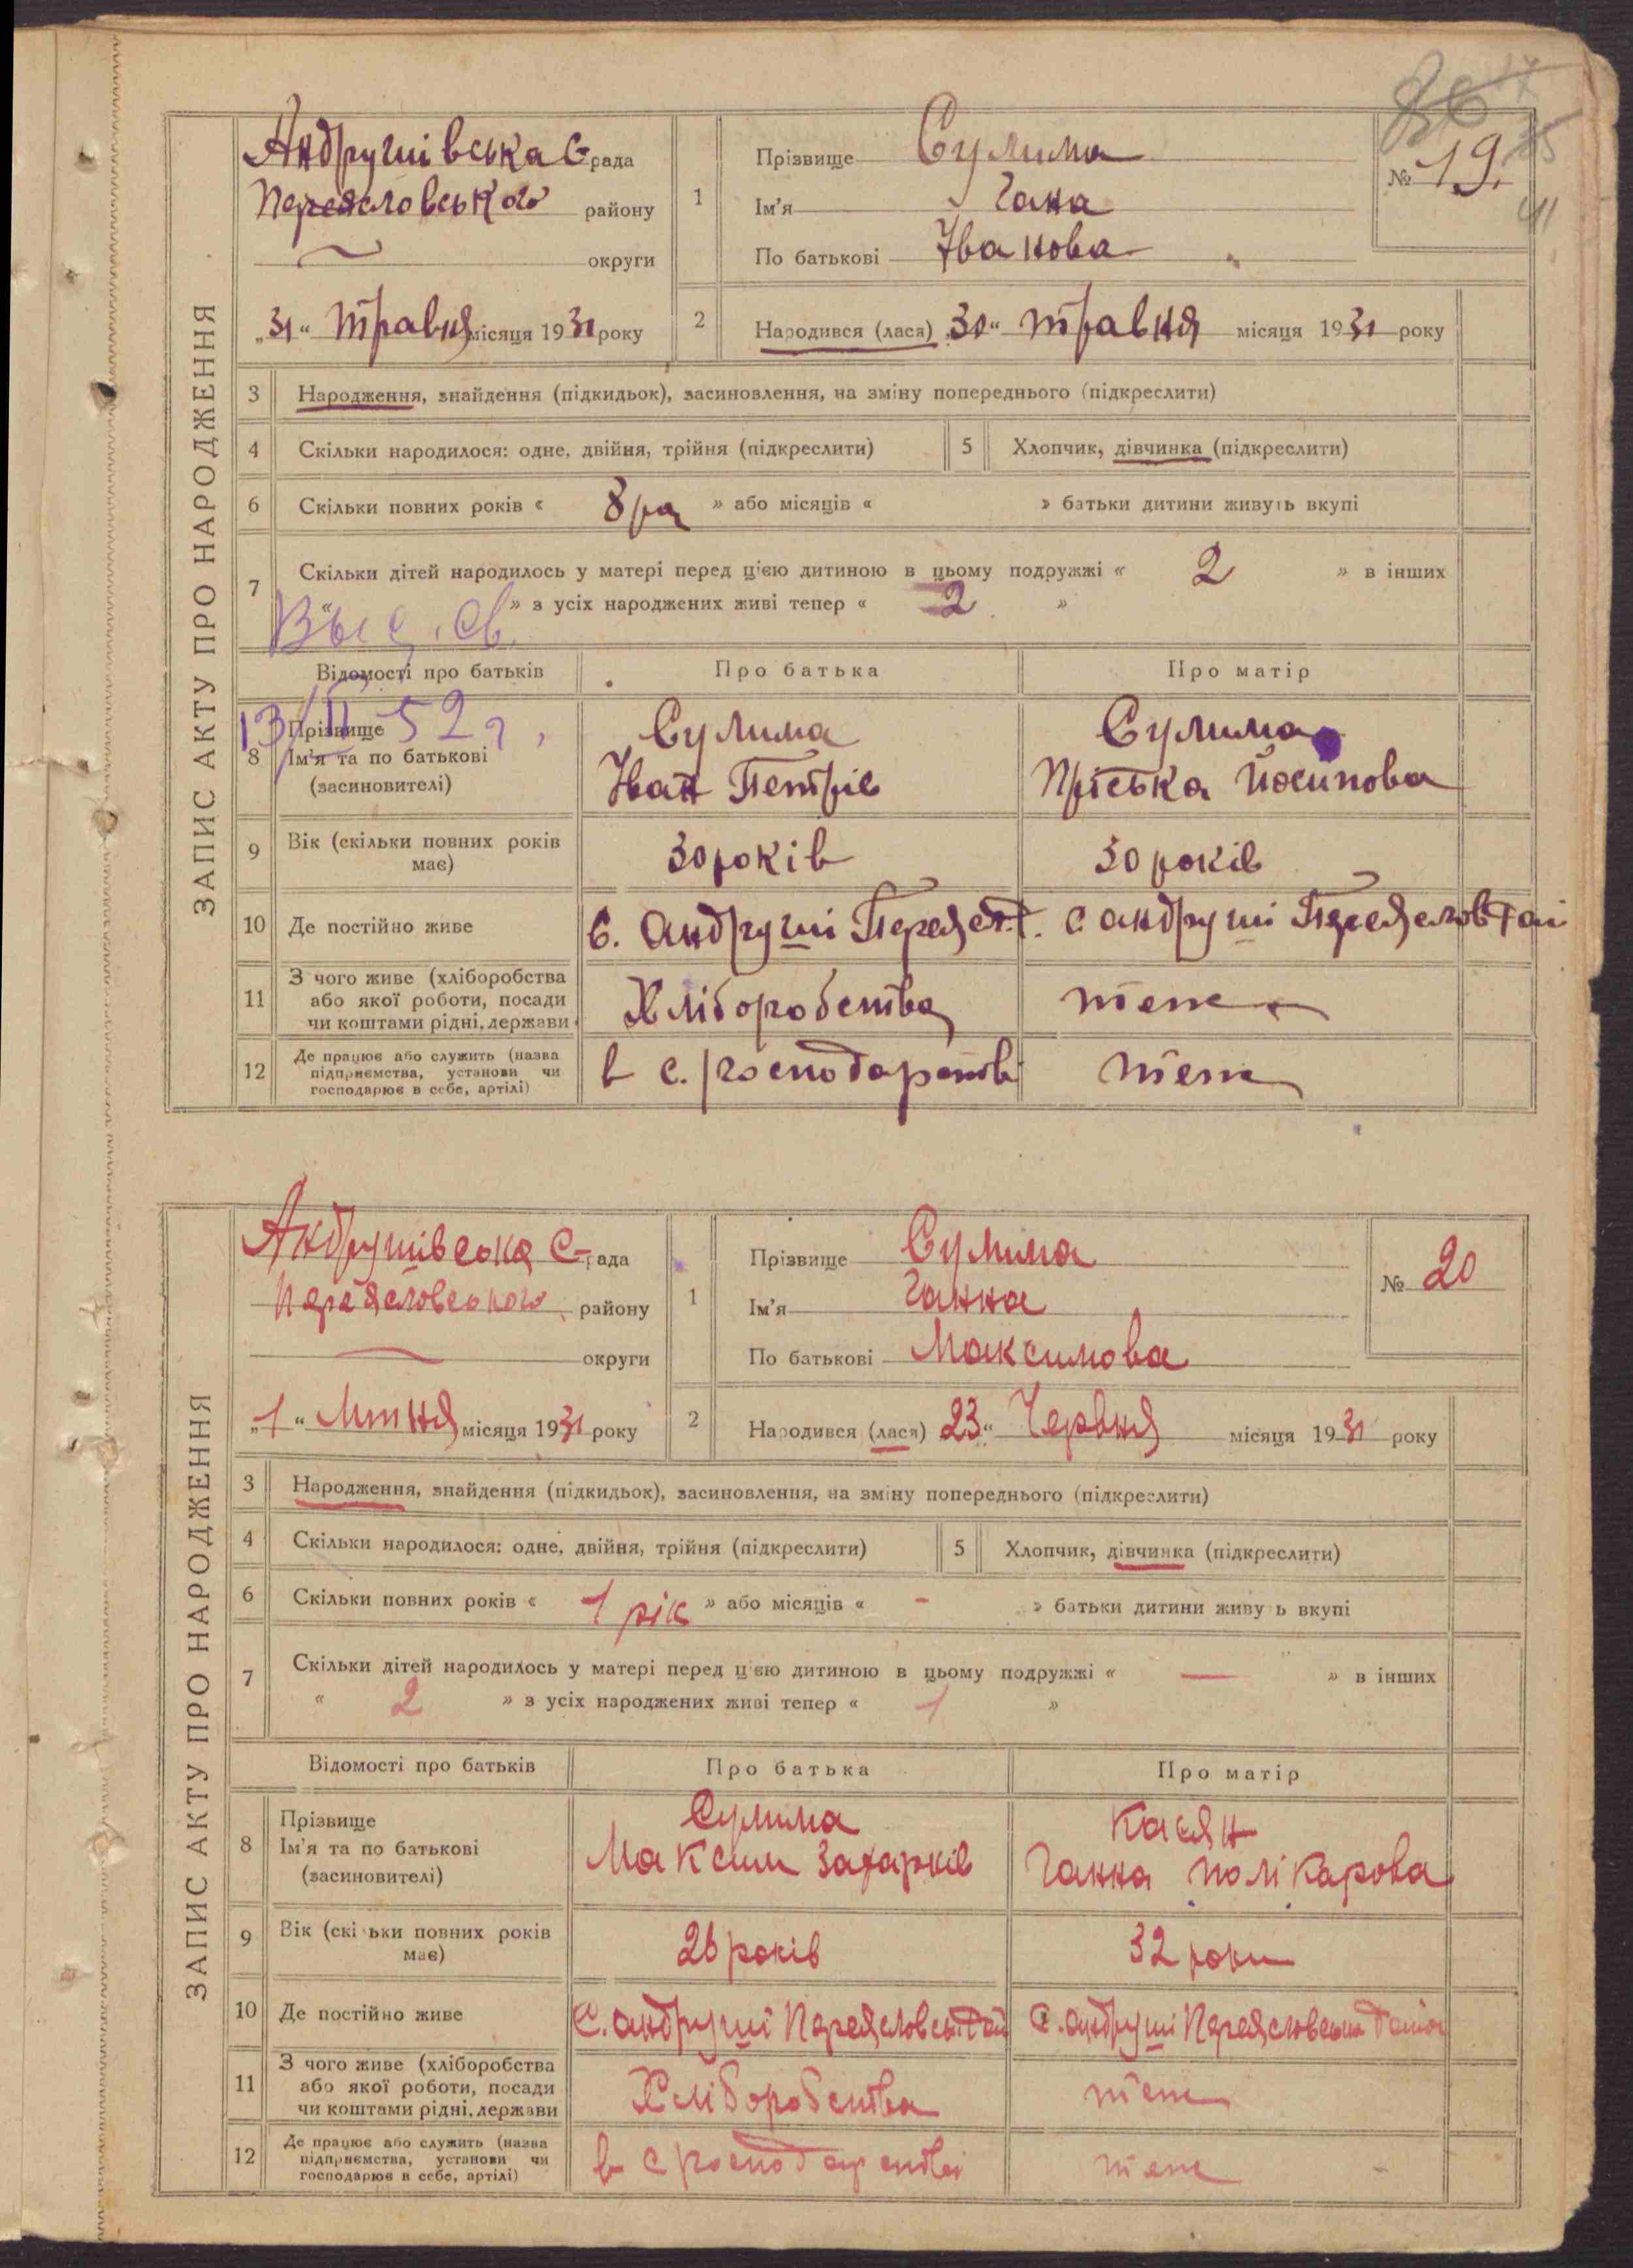 ЗАПИС АКТУ ПРО НАРОДЖЕННЯ
Андрушівська С. рада
Переясловського району
округи
„31“ Травня місяця 1931 року
1 Прізвище Сулима
Ім'я Гана
По батькові Іванова
№ 19.
2 Народився (лася) „30“ травня місяця 1931 року
3 Народження, знайдення (підкидьок), засиновлення, на зміну попереднього (підкреслити)
4 Скільки народилося: одне, двійня, трійня (підкреслити) 5 Хлопчик, дівчинка (підкреслити)
6 Скільки повних років « 8 » або місяців « » батьки дитини живуть вкупі
7 Скільки дітей народилось у матері перед цією дитиною в цьому подружжі « 2 » в інших
« » з усіх народжених живі тепер « 2 »
Відомості про батьків Про батька Про матір
13/ІІ 52 г.
8 Прізвище Сулима Сулима
Ім'я та по батькові Іван Петрів Пріська Йосипова
(засиновителі)
9 Вік (скільки повних років має) 30 років 30 років
10 Де постійно живе С. Андруші с Андруші
11 З чого живе (хліборобства
або якої роботи, посади
чи коштами рідні, держави Хліборобства теж
12 Де працює або служить (назва
підприємства, установи чи
господарює в себе, артілі) в с. господарстві теж
ЗАПИС АКТУ ПРО НАРОДЖЕННЯ
Андрушівська С. рада
Переясловського району
округи
„1“ Липня місяця 1931 року
1 Прізвище Сулима
Ім'я Ганна
По батькові Максимова
№ 20
2 Народився (лася) 23“ Червня місяця 1931 року
3 Народження, знайдення (підкидьок), засиновлення, на зміну попереднього (підкреслити)
4 Скільки народилося: одне, двійня, трійня (підкреслити) 5 Хлопчик, дівчинка (підкреслити)
6 Скільки повних років « 1 рік » або місяців « - » батьки дитини живу ь вкупі
7 Скільки дітей народилось у матері перед цією дитиною в цьому подружжі « — » в інших
« 2 » з усіх народжених живі тепер « 1 »
Відомості про батьків Про батька Про матір
8 Прізвище Сулима Касян
Ім'я та по батькові Максим Захарків Ганна Полікарова
(засиновителі)
9 Вік (скі ьки повних років має) 26 років 32 роки
10 Де постійно живе С. Андруші С. Андруші
11 З чого живе (хліборобства
або якої роботи, посади
чи коштами рідні, держави Хліборобства теж
12 Де працює або служить (назва
підприємства, установи чи
господарює в себе, артілі) в с господарстві теж